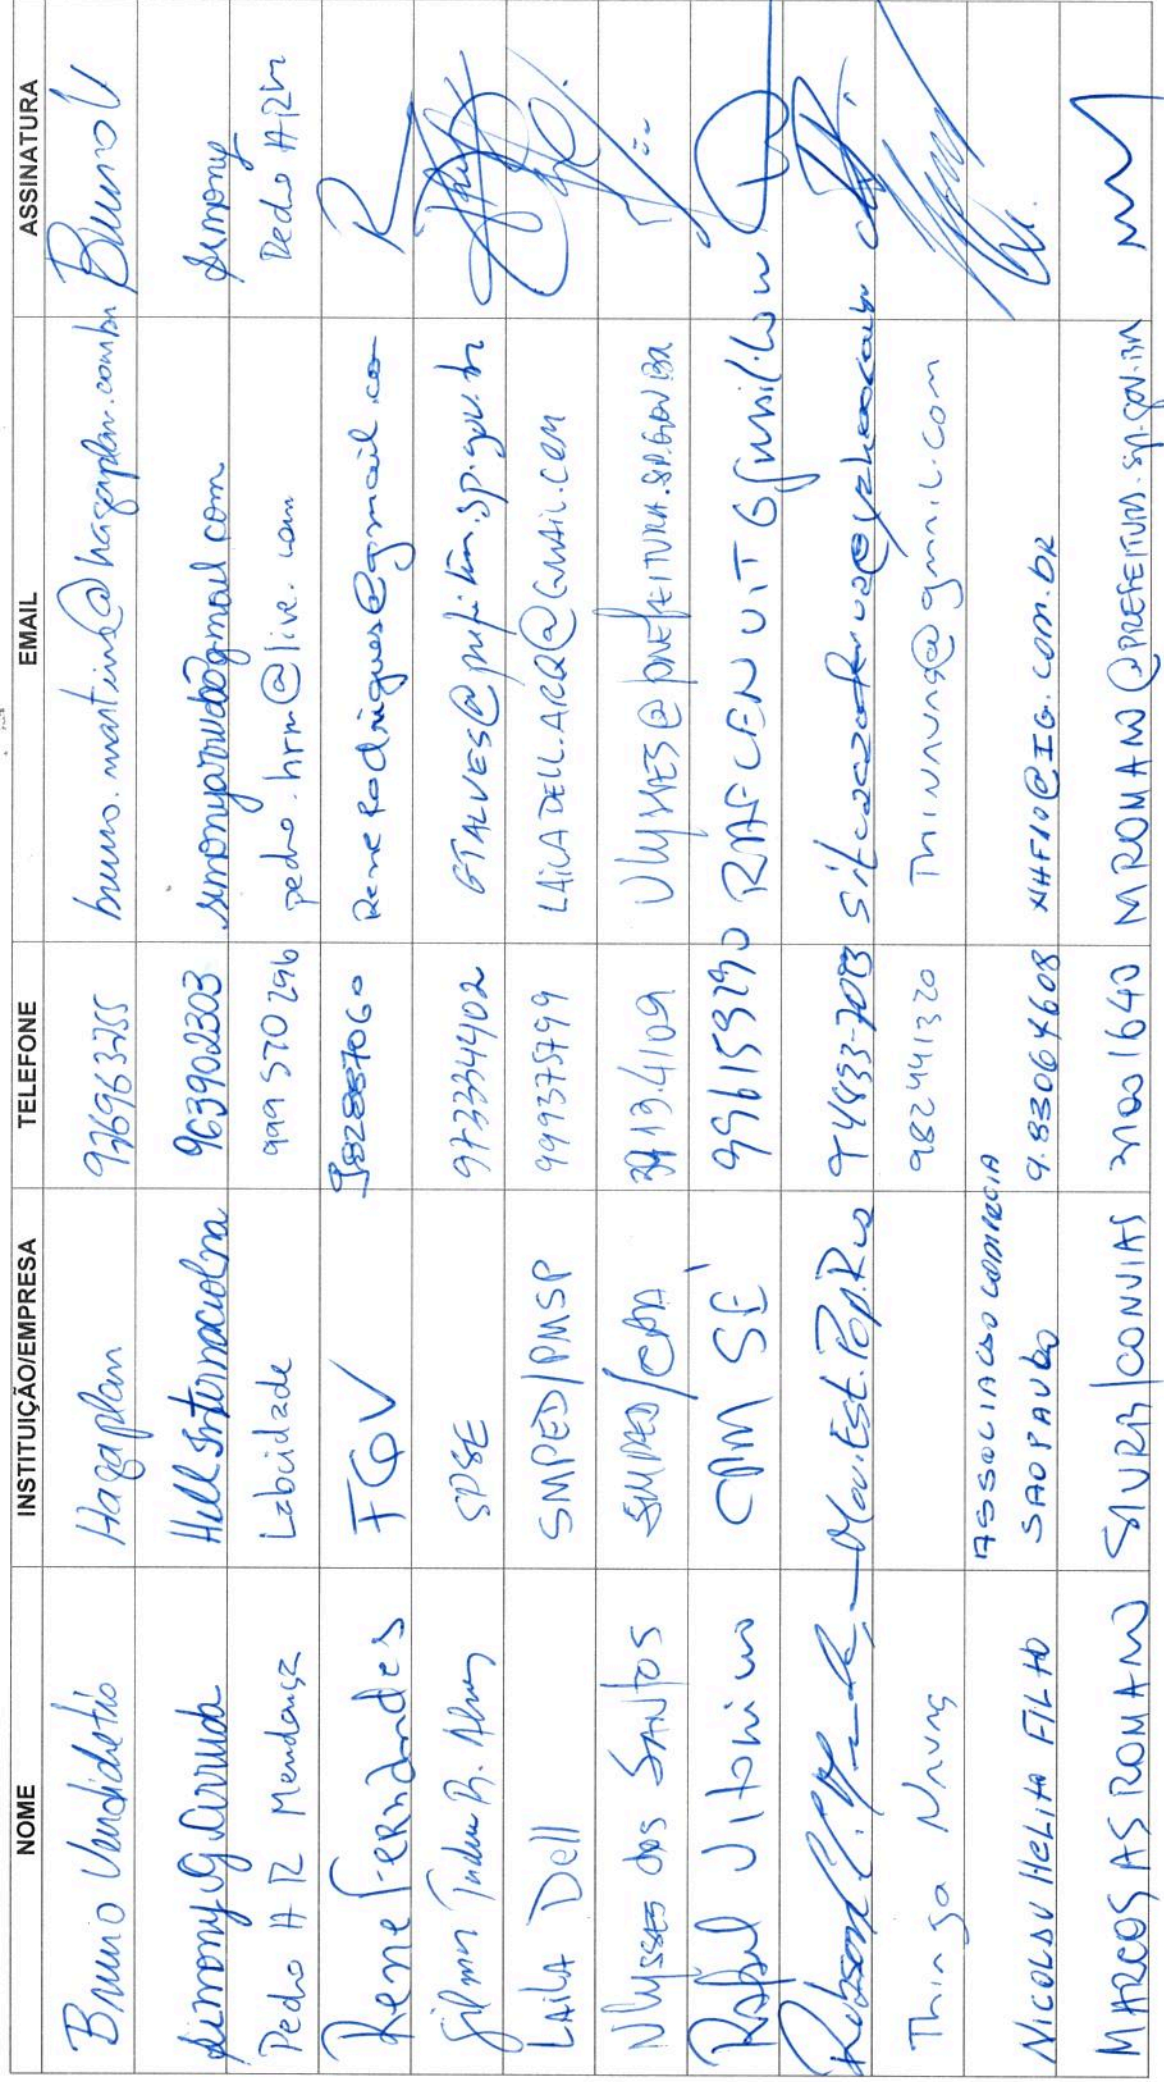 NOME INSTITUIÇÃO/EMPRESA TELEFONE EMAIL ASSINATURA
Bruno Vendidetio Hagaplan 976963755 bruno.martins@hagaplan.com.br Bruno V
Simony G Arruda Hell Internaciolna 963902303 simonyarruda@gmail.com Simony
Pedro H R Mendonça Labcidade 999570296 pedro.hrm@live.com Pedro HRM
Rene Fernandes FGV 982887060 Rene Rodrigues@gmail.com R
SPSE 973334402 GTALVES@prefeitura.sp.gov.br
LAILA Dell SMPED/PMSP 999375799 LAILADELL.ARQ@GMAIL.COM
Ulysses dos SANTOS SMPED/CPA 3913.4109 Ulysses@PREFEITURA.SP.GOV.BR
Rafael Vitorino CPM SÉ 996159290
Robson Mov.Est.Pop.Rua
Thinga Nnung 982441320 Thinnung@gmail.com
ASSOCIACAO COMERCIA
NICOLAU HELITO FILHO SAO PAULO 9.83064608 NHF10@IG.com.br
MARCOS AS ROMANO SIURB/CONVIAS 31001640 MROMANO@PREFEITURA.SP.GOV.BR